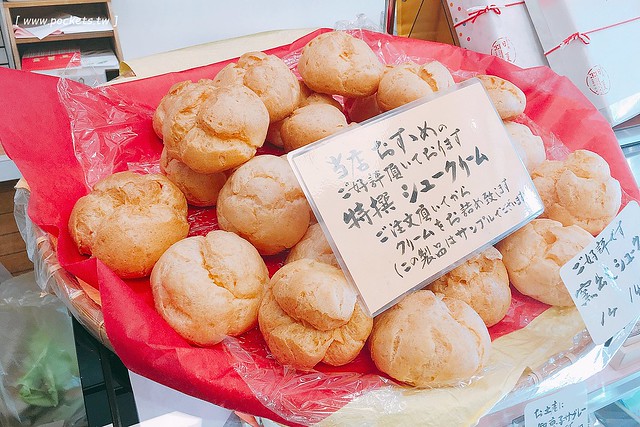 [ www.pockets.tw ]
当店おすすめの
ご好評頂いております
特撰 シュークリーム
ご注文頂いてから
クリームをお詰め致します
(この製品はサンプルでございます)
ご好評です
窯出シュー
お土産に